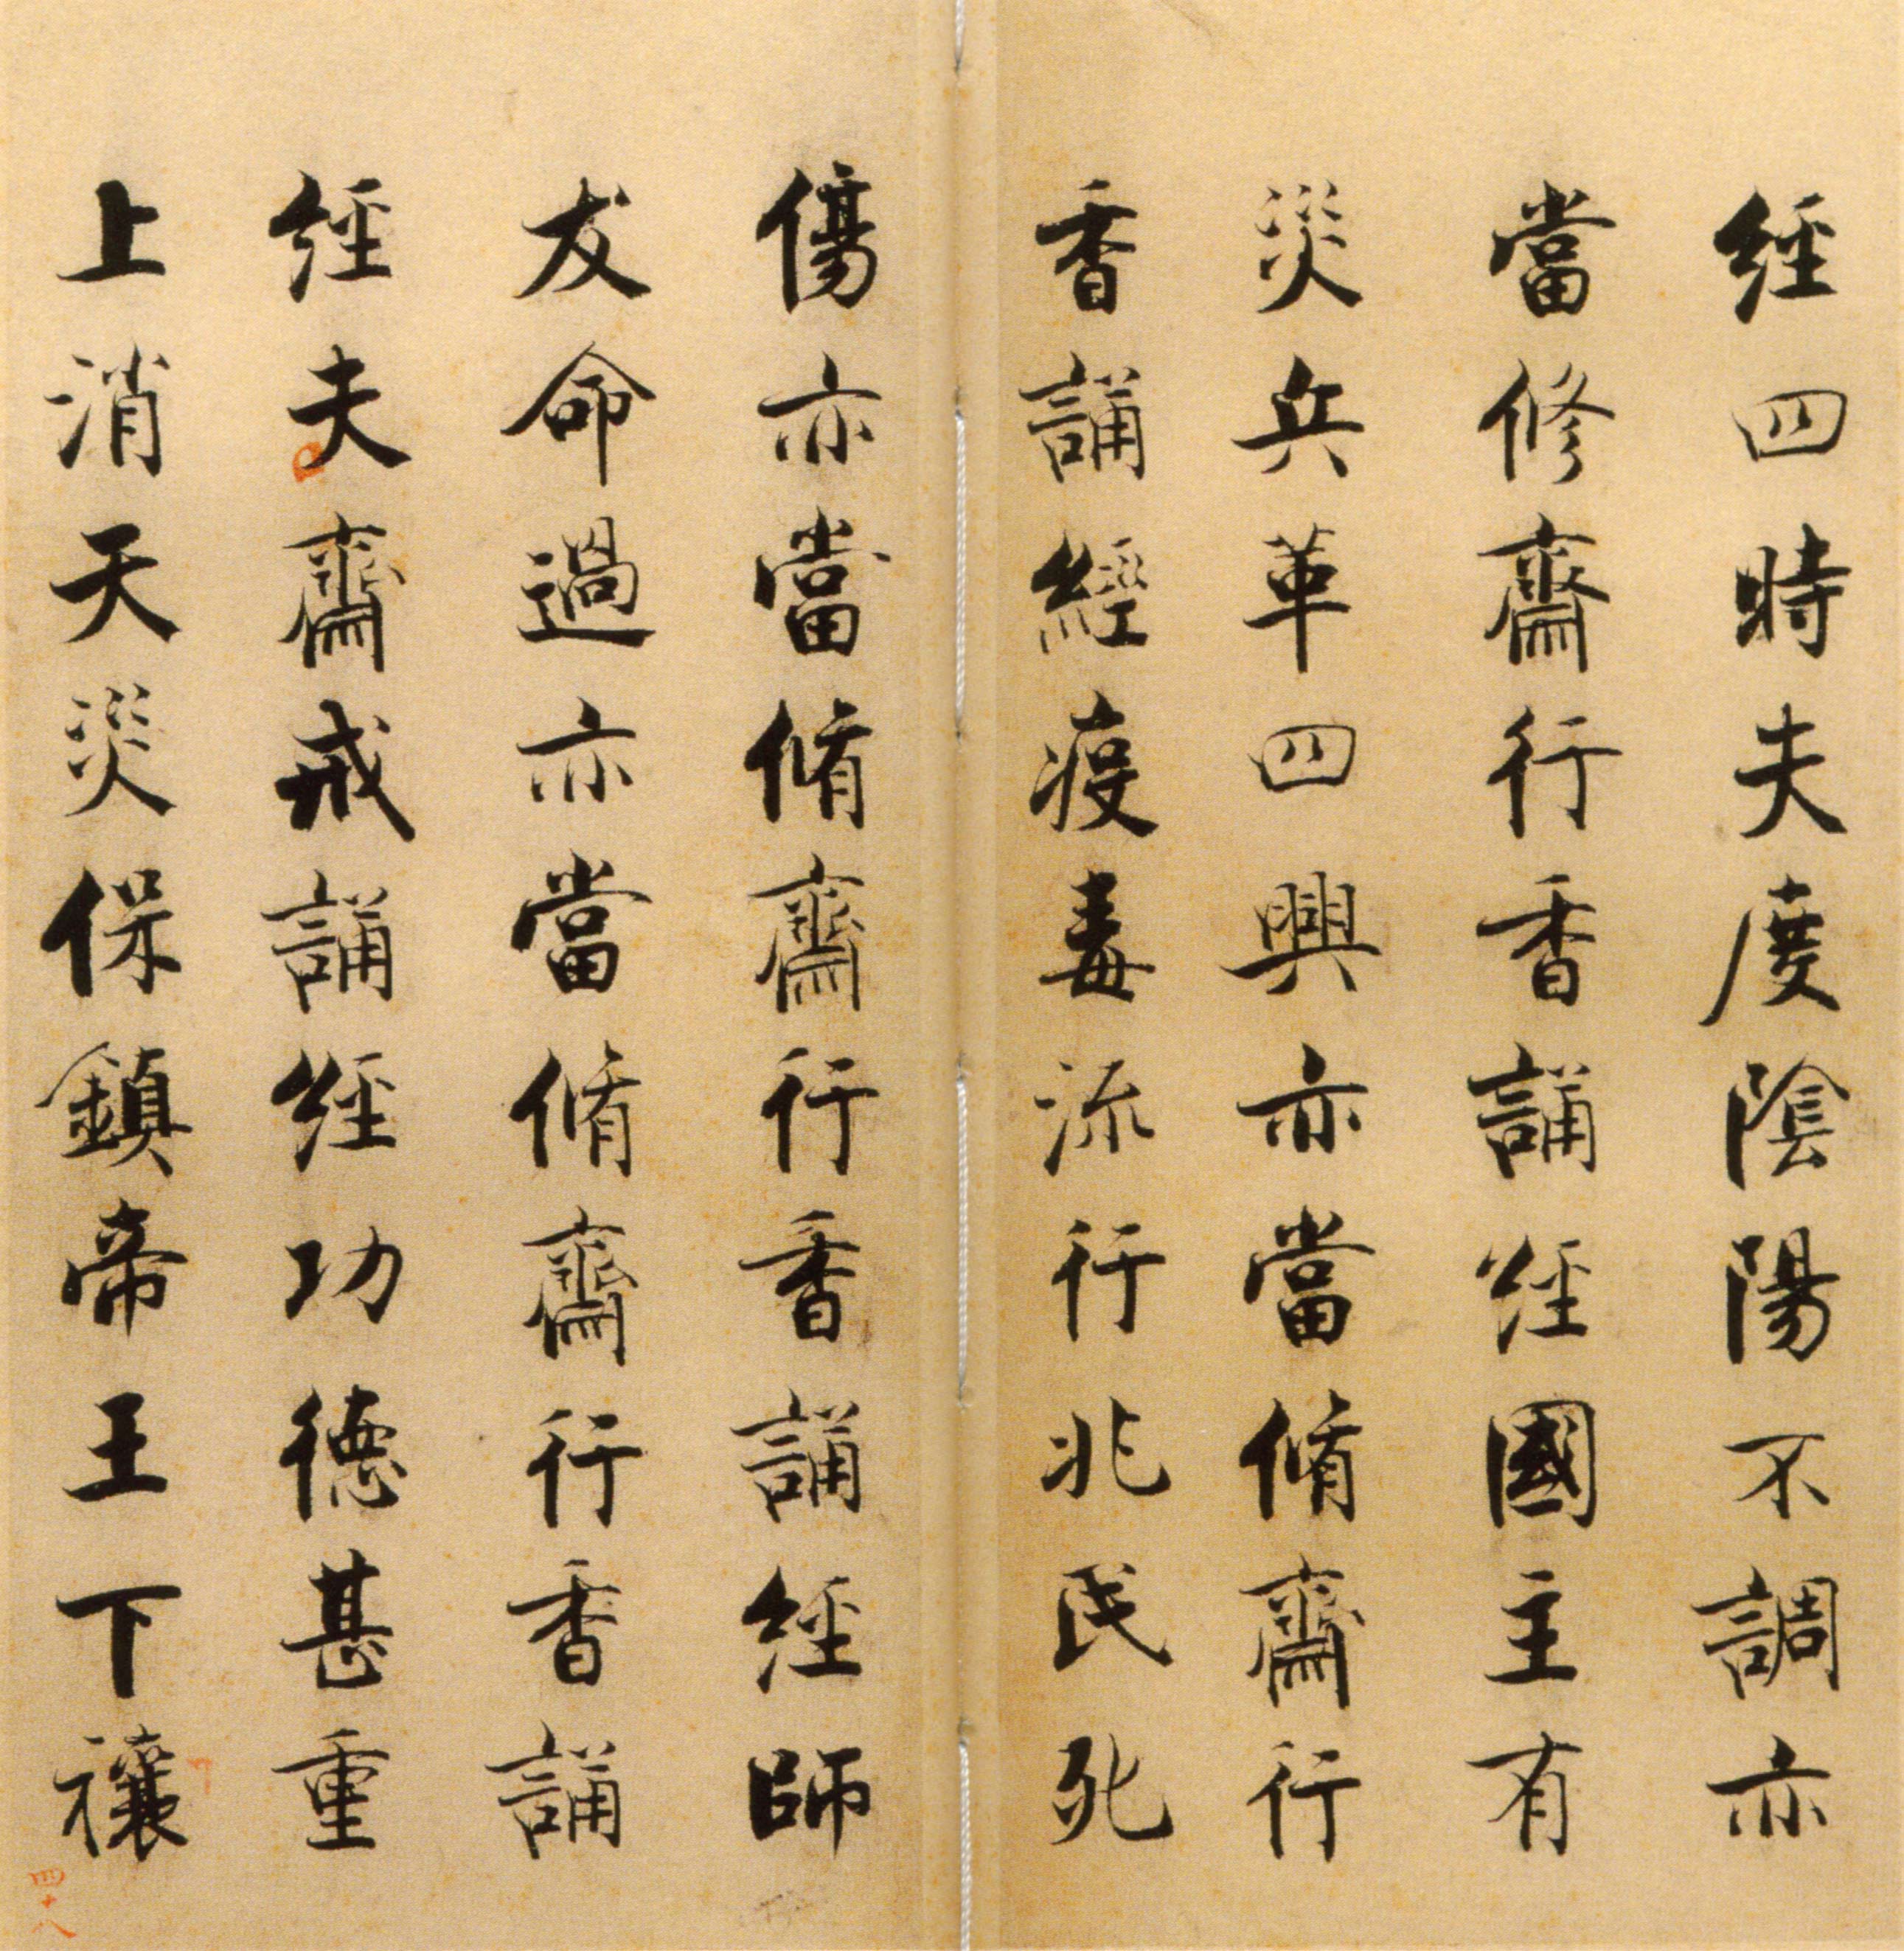 經四時失度陰陽不調亦
當修齋行香誦經國主有
災兵革四興亦當脩齋行
香誦經疫毒流行兆民死
傷亦當脩齋行香誦經師
友命過亦當脩齋行香誦
經夫齋戒誦經功德甚重
上消天災保鎮帝王下禳
四十八